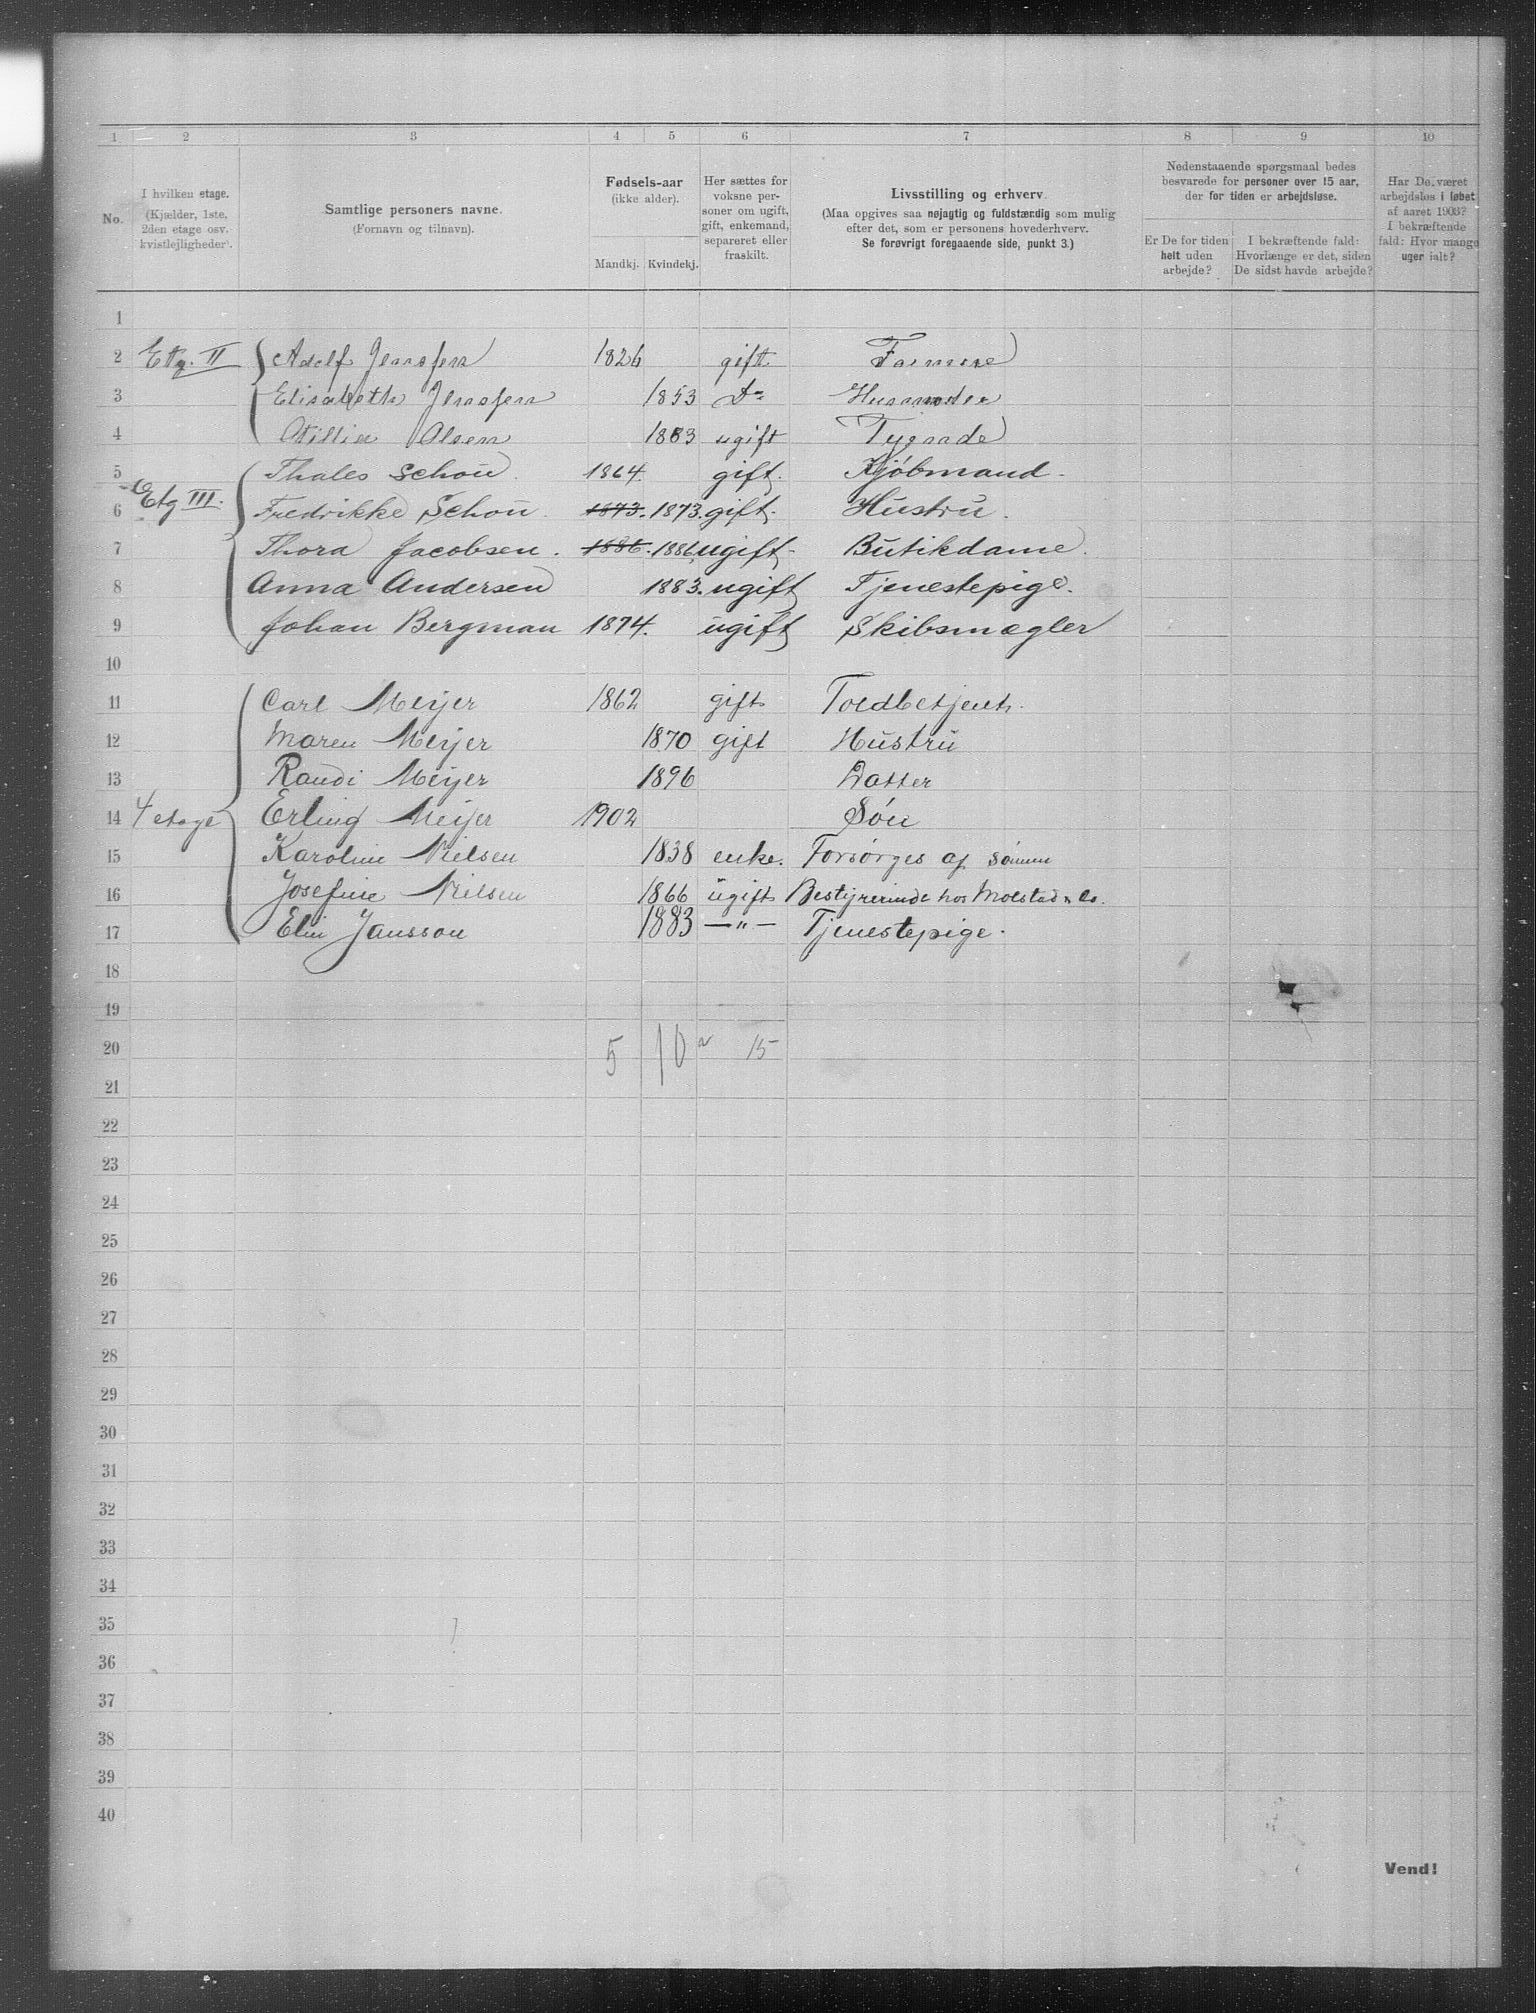 1 2 3 4 5 6 7 8 9 10
No.
I hvilken etage.
(Kjælder, 1ste,
2den etage osv.
kvistlejligheder).
Samtlige personers navne.
(Fornavn og tilnavn).
Fødsels-aar
(ikke alder).
Mandkj. Kvindekj.
Her sættes for
voksne per-
soner om ugift,
gift, enkemand,
separeret eller
fraskilt.
Livsstilling og erhverv.
(Maa opgives saa nøjagtig og fuldstændig som mulig
efter det, som er personens hovederhverv.
Se forøvrigt foregaaende side, punkt 3.)
Nedenstaaende spørgsmaal bedes
besvarede for personer over 15 aar,
der for tiden er arbejdsløse.
Er De for tiden
helt uden
arbejde?
I bekræftende fald:
Hvorlænge er det, siden
De sidst havde arbejde?
Har De været
arbejdsløs i løbet
af aaret 1903?
I bekræftende
fald: Hvor mange
uger ialt?
1
2 Etg. II Adolf 1826 gift
3 Elisabeth 1853 Do Husmoder
4 Olsen 1883 ugift
5 Thales Schou 1864. gift. Kjöbmand.
6 Etg III. Fredrikke Schou. 1873. 1873. gift. Hustru.
7 Thora Jacobsen. 1886. 1886 ugift. Butikdame.
8 Anna Andersen 1883. ugift Tjenestepige.
9 Johan Bergman 1874. ugift Skibsmægler
10
11 Carl Meijer 1862 gift Toldbetjent.
12 Maren Meijer 1870 gift Hustru
13 Randi Meijer 1896 Datter
14 4 etage Erling Meijer 1902 Sön
15 Karoline Nielsen 1838 enke. Forsörges af sönnen
16 Josefine Nielsen 1866 ugift Bestyrerinde hos Molstad & Co.
17 Elin Jansson 1883 —"— Tjenestepige.
18
19
20 5 10 15
21
22
23
24
25
26
27
28
29
30
31
32
33
34
35
36
37
38
39
40
Vend!